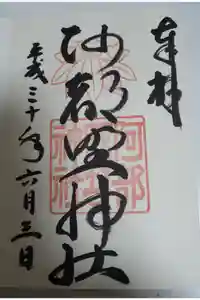 奉拝
阿部野神社
平成三十年六月三日